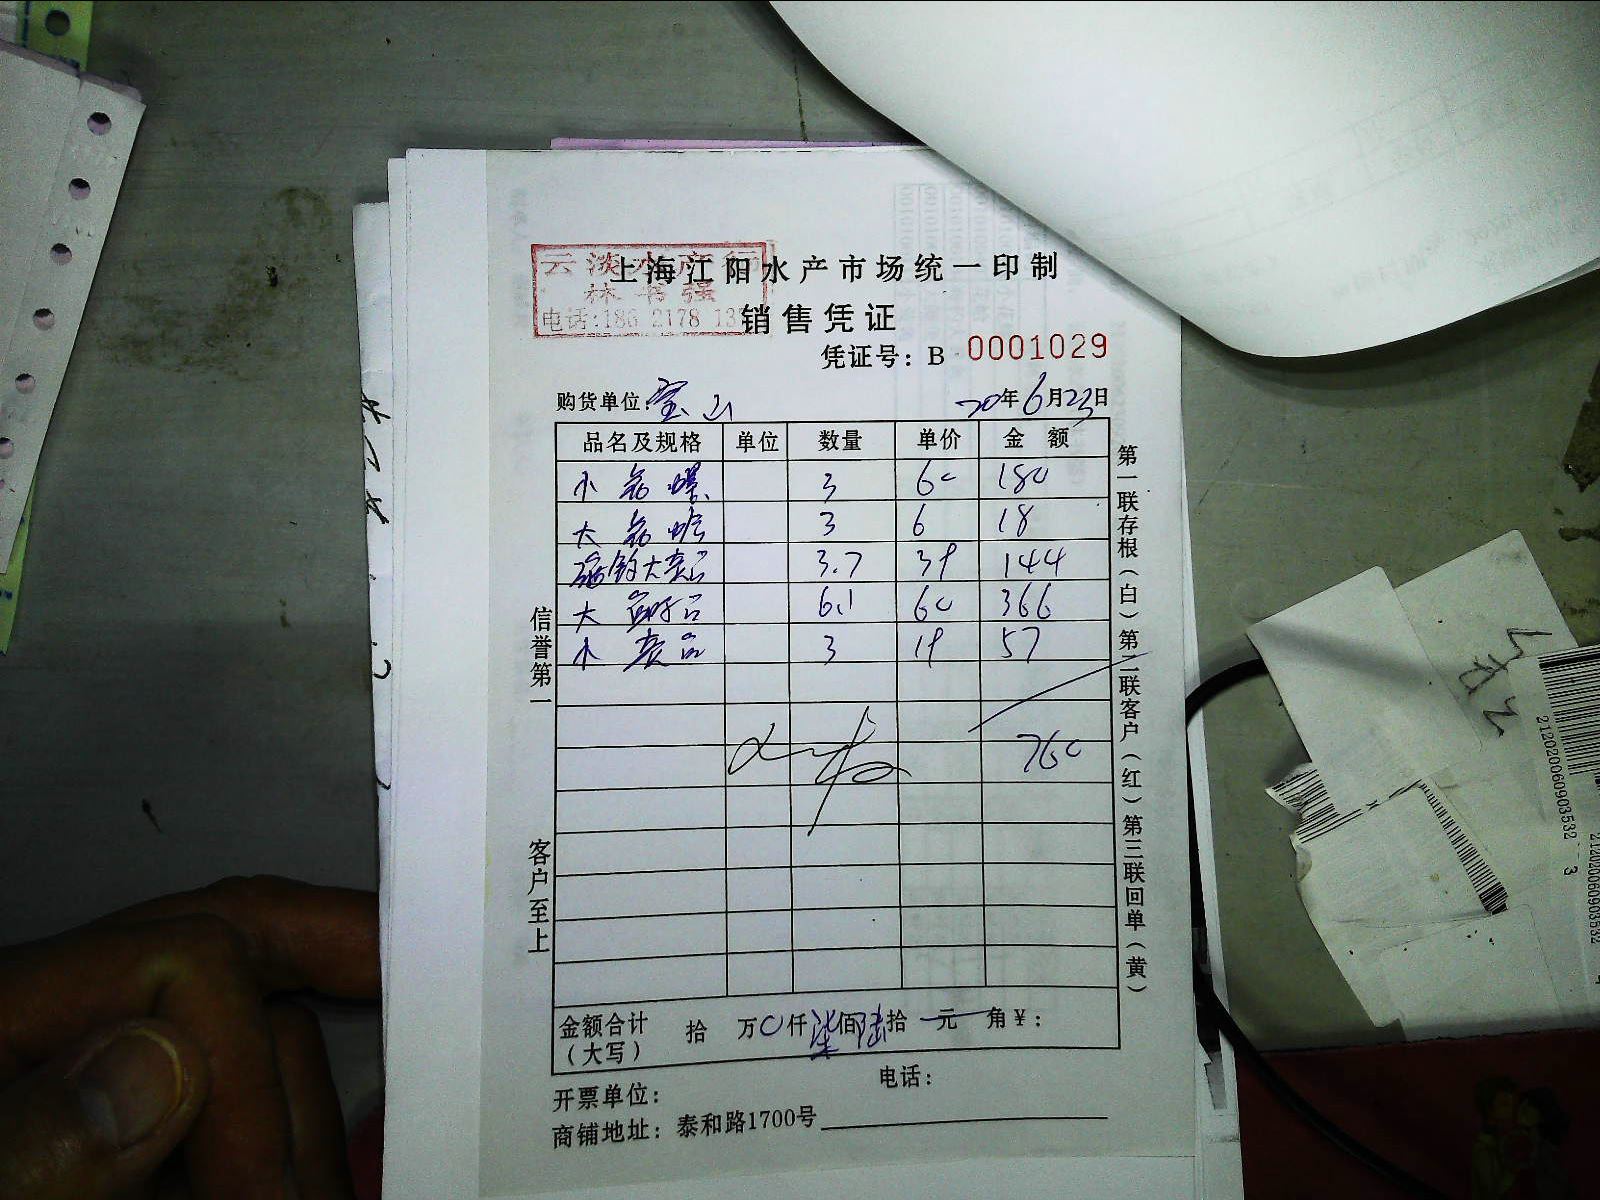 云淡水产行
林书强
电话:186 2178 13
上海江阳水产市场统一印制
销售凭证
凭证号：B 0001029
购货单位：宝山 20年6月23日
品名及规格 单位 数量 单价 金额
3 60 180
大 3 6 18
3.7 39 144
大 6.1 60 366
小 3 19 57
760
金额合计（大写） 拾 万0仟柒佰陆拾 元 角￥：
开票单位： 电话：
商铺地址：泰和路1700号
信誉第一 客户至上
第一联存根（白）第二联客户（红）第三联回单（黄）
2120200609035323